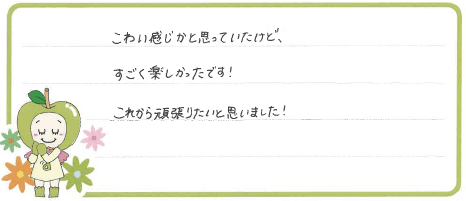 こわい感じかと思っていたけど、
すごく楽しかったです!
これから頑張りたいと思いました!